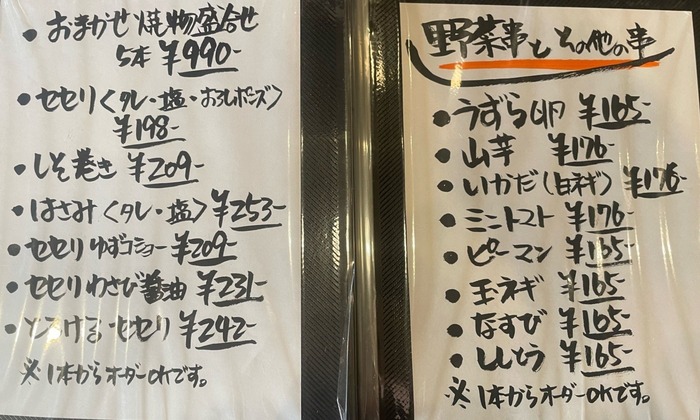 • おまかせ焼物盛合せ
5本 ¥990-
• セセリ〈タレ・塩・おろしポンズ〉
¥198-
• しそ巻き ¥209-
• はさみ〈タレ・塩〉¥253-
• セセリゆずコショー ¥209-
• セセリわさび醤油 ¥231-
• とろけるセセリ ¥242-
※1本からオーダーOKです。
野菜串とその他の串
• うずら卵 ¥165-
• 山芋 ¥176-
• いかだ(白ネギ) ¥176-
• ミニトマト ¥176-
• ピーマン ¥165-
• 玉ネギ ¥165-
• なすび ¥165-
• ししとう ¥165-
※1本からオーダーOKです。